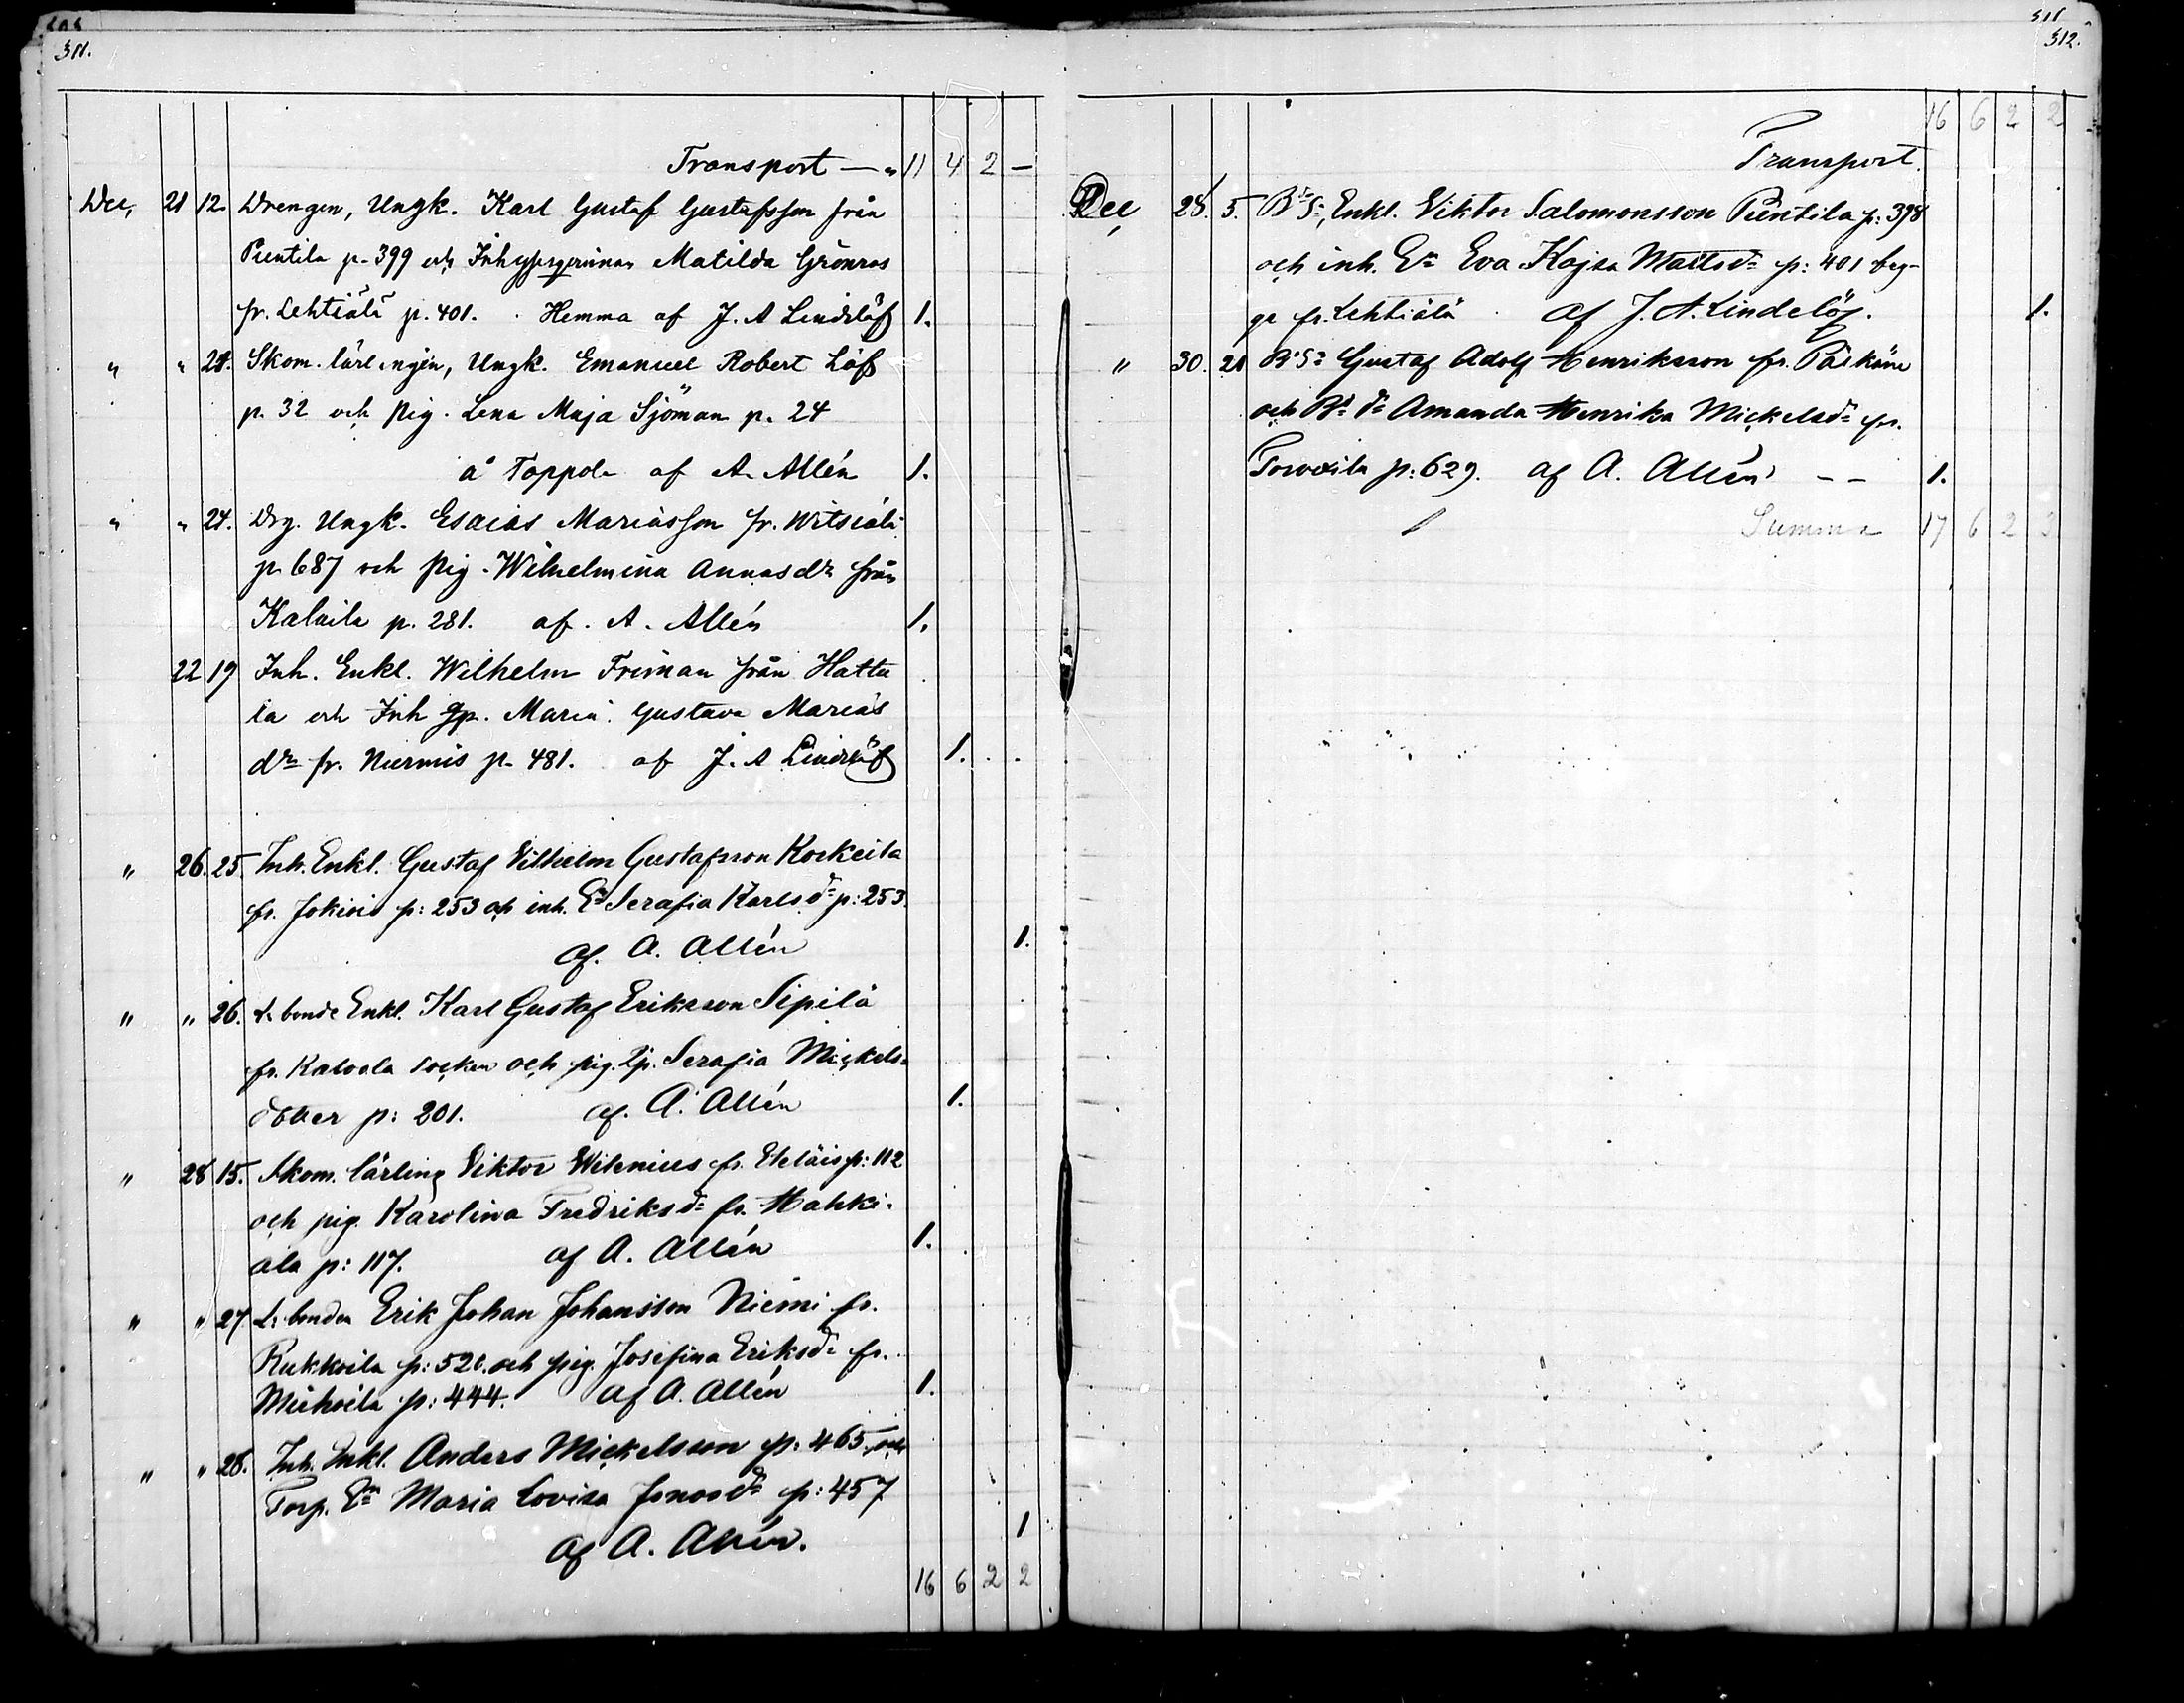 311.
Transport — " 11 4 2 —
Dec, 21 12. Drengen, Ungk. Karl Gustaf Gustafsson från
Pentila p. 399 och Inh Matilda Grönros
fr. Lehtiälä p. 401. Hemma af J. A Lindelöf 1.
" " 24. Skom. lärlingen, Ungk. Emanuel Robert Löf
p. 32 och Pig. Lena Maja Sjöman p. 24
å Toppola af A. Allén 1.
" " 24. Drg. Ungk. Esaias Mariasson fr. Witsiälä
p. 687 och Pig. Wilhelmina Annasdr från
Kalaila p. 281. af. A. Allén 1.
22 19 Inh. Enkl. Wilhelm Friman från Hattu
la och Inh Qp. Maria Gustava Marias
dr fr. Nurmis p. 481. af J. A Lindelöf 1.
" 26. 25. Inh. Enkl. Gustaf Vilhelm Gustafsson Korkeila
fr. Jokiois p: 253 och inh. Ea Serafia Karlsdr p: 253.
af. A. Allén 1.
" " 26. L. bonde Enkl. Karl Gustaf Eriksson Sipilä
fr. Kalvola socken och pig. Qp. Serafia Mickels-
dotter p: 201. af. A. Allén 1.
" 28 15. Skom. lärling Viktor Wilenius fr. Eteläis p: 112
och pig. Karolina Fredriksdr fr. Mahki-
ala p: 117. af A. Allén 1.
" " 27 L. bonden Erik Johan Johansson Niemi fr.
Rukkoila p: 520. och pig. Josefina Eriksdr fr.
Michoila p: 444. af A. Allén 1.
" " 28. Inh. Enkl. Anders Mickelsson p: 465, och
Torp. Ea Maria Lovisa Jonasdr p: 457
af A. Allén. 1
16 6 2 2
311
312.
16 6 2 2
Transport.
Dec, 28. 5. Bd S:, Enkl. Viktor Salomonsson Pentila p: 398
och inh. Ea Eva Kajsa Mattsdr p: 401 beg-
ge fr. Lehtiälä af J. A. Lindelöf. 1.
" 30. 21 Bd S: Gustaf Adolf Henriksson fr. Pälkäne
och Bd dr Amanda Henrika Mickelsdr fr.
Torvoila p: 629. af A. Allén — — 1.
Summa 17 6 2 3